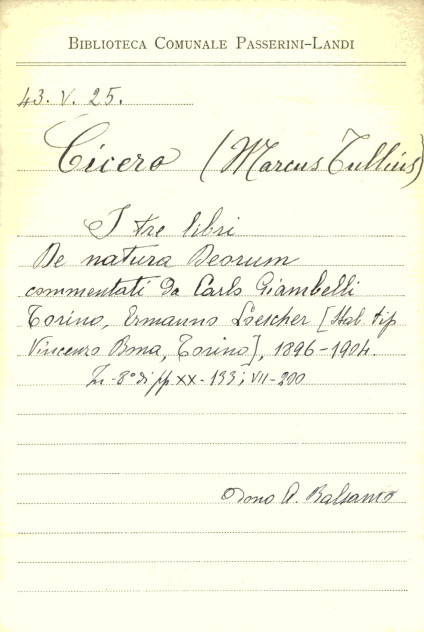 BIBLIOTECA COMUNALE PASSERINI-LANDI
43. V. 25.
Cicero (Marcus Tullius)
I tre libri
De natura Deorum
commentati da Carlo Giambelli
Torino, Ermanno Loescher [Stab. tip.
Vincenzo Bona, Torino], 1896-1904.
In-8° di pp XX-133; VII-200
Dono A. Balsamo